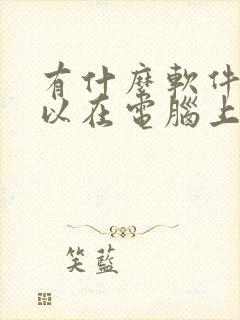 有什麼軟件
以在電腦上
笑藍